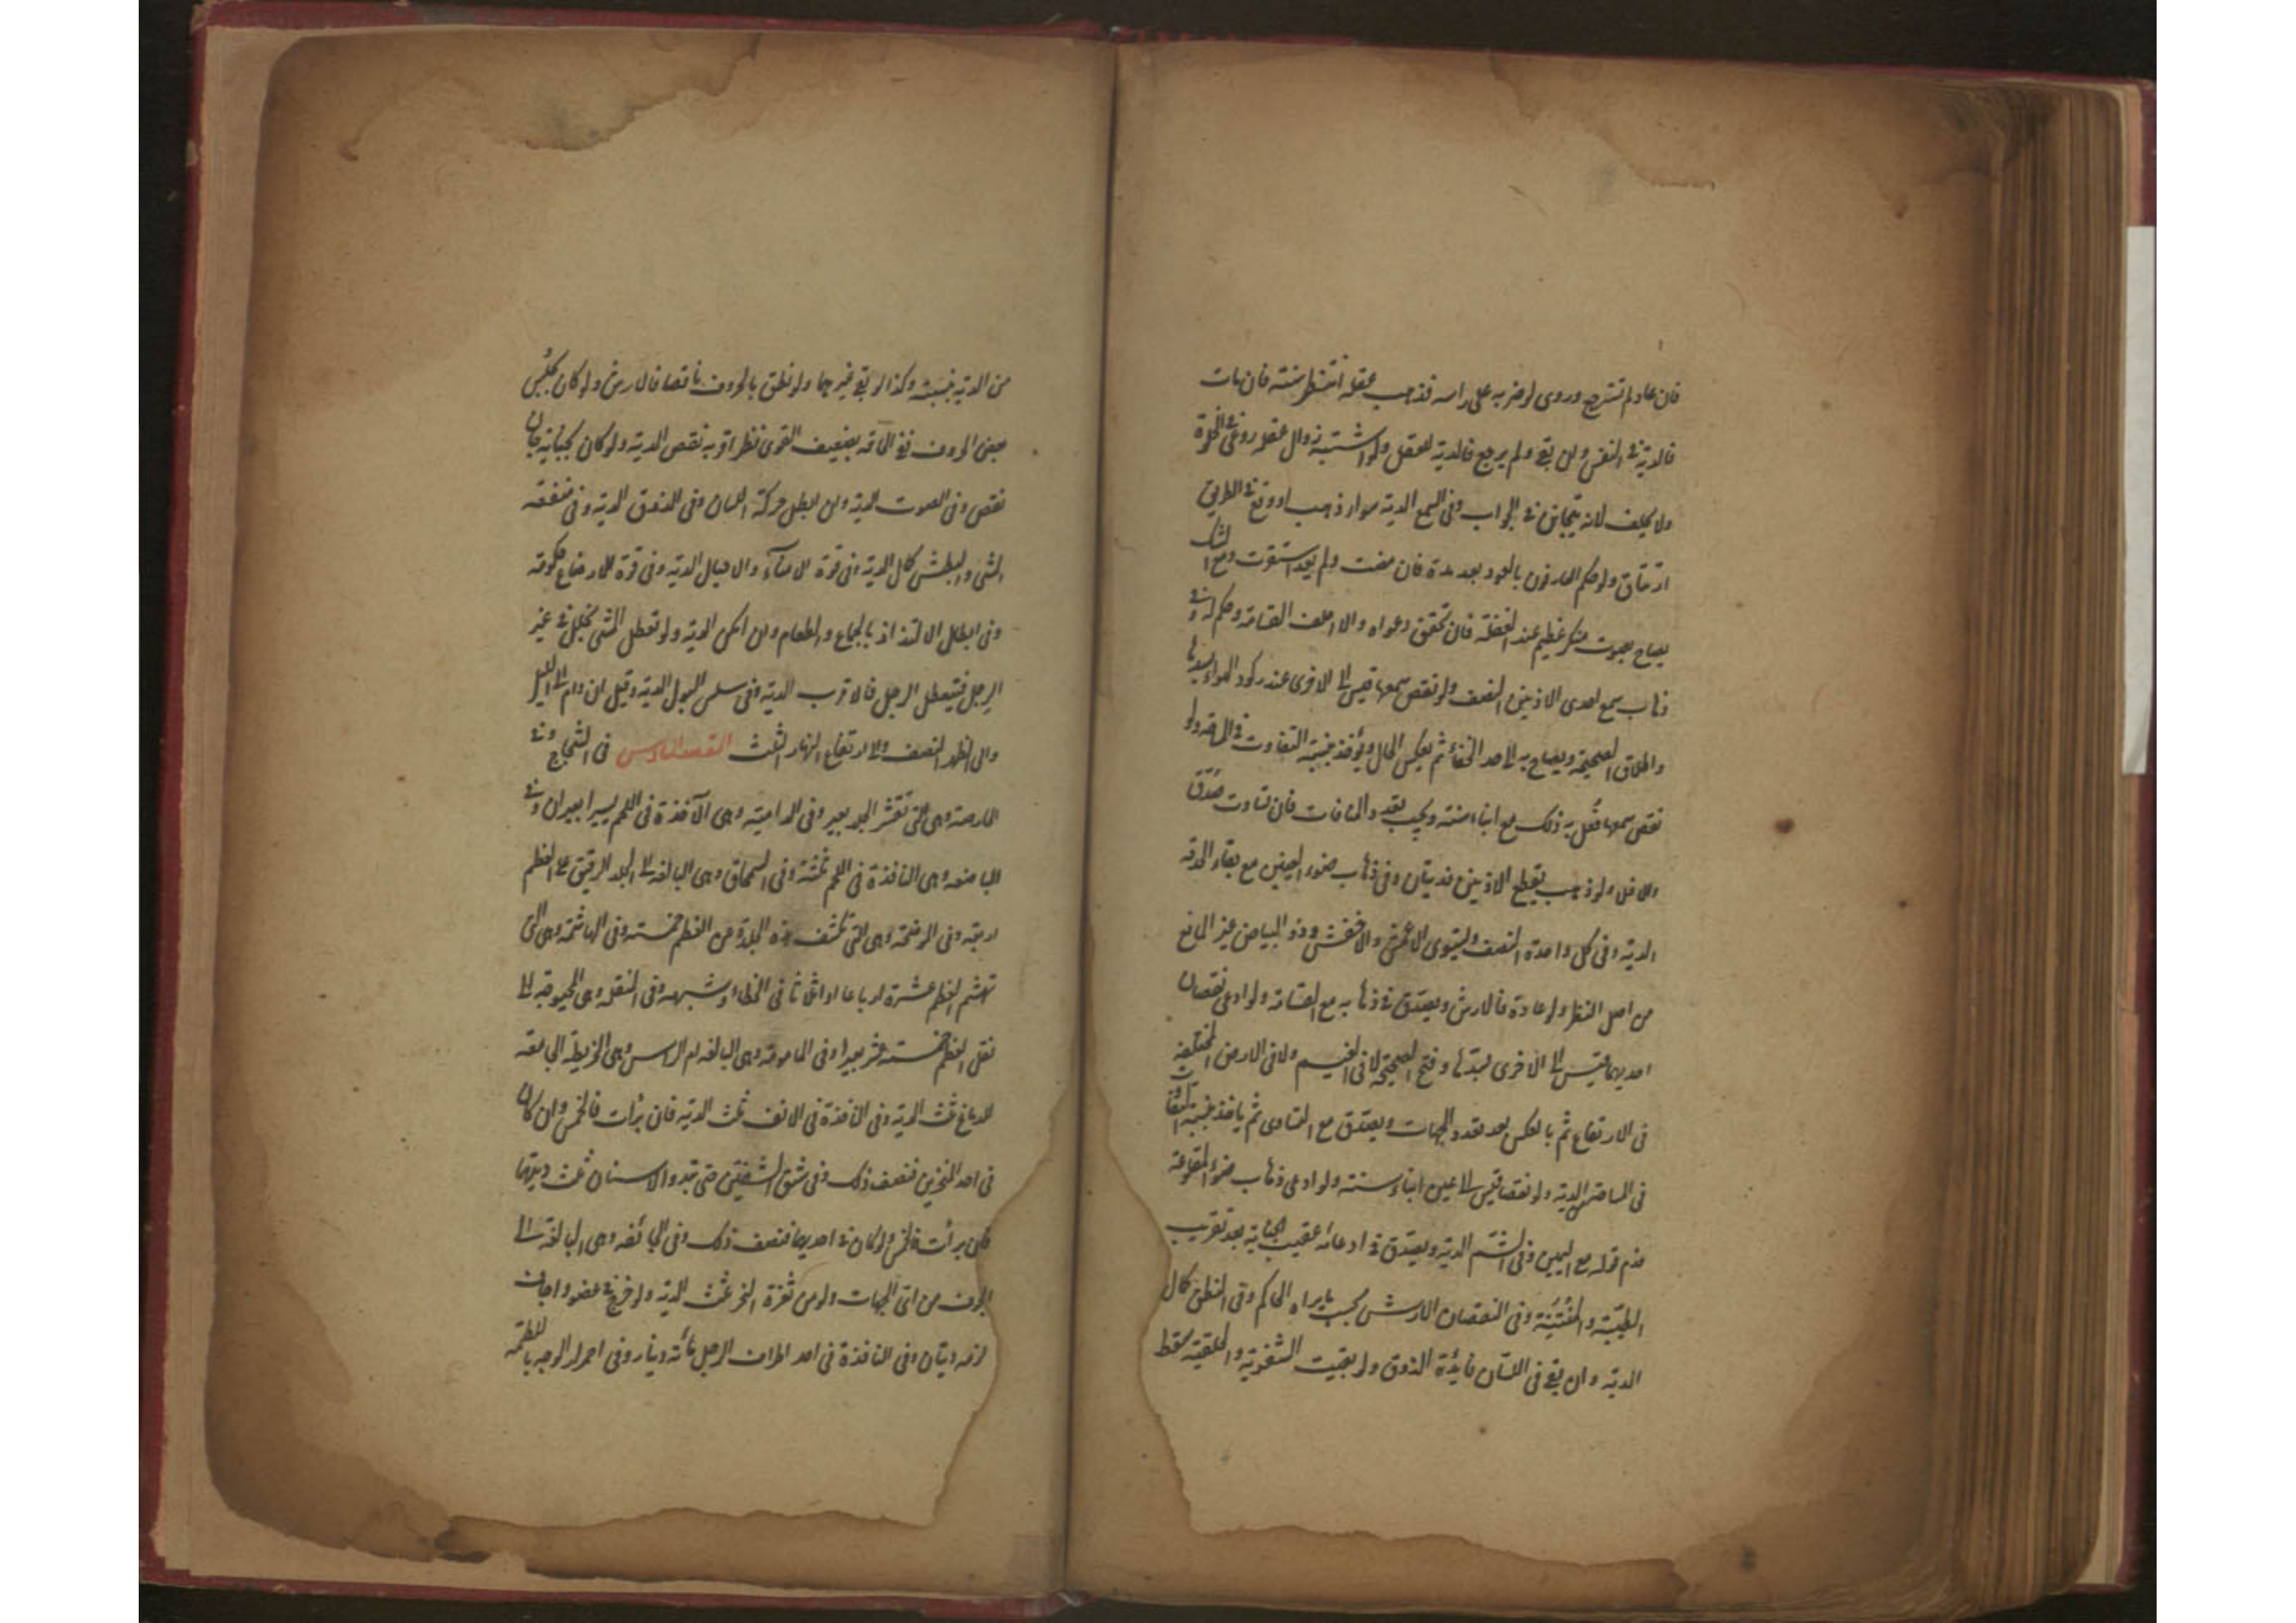 فان عاد لم تسترجع وروى لو ضربه على راسه فذهب عقله انتظر سنته فان مات
فالدية في النفس وان بقي ولم يرجع فالدية للعقل ولو اشتبه زوال عقله روعي في الخلوة
ولا يحلف لانه يتجانن في الجواب وفي السمع الدية سواء ذهب او وقع في الطريق
ارتتاق ولو حكم العارفون بالعود بعد مدة فان مضت ولم يعد استقرت ومع الشك
يصاح بصوت منكر عظيم عند الغفلة فان تحقق دعواه والا احلف القسامة وحكم له وفي
ذهاب سمع احدى الاذنين النصف ولو نقص سمعها قيس الى الاخرى عند ركود الهواء بسدها
واطلاق الصحيحة ويصاح به الى حد الخفاء ثم يعكس الحال ويؤخذ بنسبة التفاوت في المساحة ولو
نقص سمعهما فعل به ذلك مع ابناء سنه ويجب بقدر المسافات فان تساوت صدق
والا فلا ولو ذهب بقطع الاذنين فديتان وفي ذهاب ضوء العينين مع بقاء الحدقة
الدية وفي كل واحدة النصف ويستوى الاعمش والاخفش وذو البياض غير المانع
من اصل النظر ولو عاد فالارش ويصدق في ذهابه مع القسامة ولو ادعى نقصان
احديهما قيس الى الاخرى بسدها وفتح الصحيحة لا في الغيم ولا في الارض المختلفة
في الارتفاع ثم بالعكس بعد تعدد الجهات ويصدق مع التساوى ثم ياخذ بنسبة التفاوت
في المساحة الدية ولو نقصا قيس الى عين ابناء سنه ولو ادعى ذهاب ضوء المقلوعة
قدم قوله مع اليمين وفي الشم الدية ويصدق في ادعائه عقيب الجناية بعد تقريب
الطيبة والمنتنة وفي النقصان الارش بحسب ما يراه الحاكم وفي النطق كمال
الدية وان بقي في اللسان فايدة الذوق ولو بقيت الشفوية والحلقية سقط
من الدية بنسبته وكذا لو بقي غيرهما ولو نطق بالحروف ناقصا فالارش ولو كان يحسن
بعض الحروف ففي الحاقه بضعيف القوى نظر اقربه نقص الدية ولو كان بجناية جان
نقص وفي الصوت الدية وان ابطل حركة اللسان وفي الذوق الدية وفي منفعة
المشي والبطش كمال الدية وفي قوة الامناء والاحبال الدية وفي قوة الارضاع حكومة
وفي ابطال الالتذاذ بالجماع والطعام وان امكن الدية ولو تعطل المشي بخلل في غير
الرجل فيتعطل الرجل فالاقرب الدية وفي سلس البول الدية وقيل ان دام الى الليل
والى الظهر النصف والى ارتفاع النهار الثلث المقصد السادس في الشجاج وفي
الحارصة وهي التي تقشر الجلد بعير وفي الدامية وهي الآخذة في اللحم يسيرا بعيران وفي
الباضعة وهي النافذة في اللحم ثلثة وفي السمحاق وهي البالغة الى الجلد الرقيق على العظم
اربعة وفي الموضحة وهي التي تكشف هذه الجلدة عن العظم خمسة وفي الهاشمة وهي التي
تهشم العظم عشرة ارباعا او اثلاثا في الخطاء وشبهه وفي المنقلة وهي المحوجة الى
نقل العظم خمسة عشر بعيرا وفي المامومة وهي البالغة ام الراس وهي الخريطة الجامعة
للدماغ ثلث الدية وفي النافذة في الانف ثلث الدية فان برأت فالخمس وان كان
في احد المنخرين فنصف ذلك وفي شق الشفتين حتى تبدو الاسنان ثلث ديتهما
فان برأت فالخمس ولو كان في احديهما فنصف ذلك وفي الجائفة وهي البالغة الى
الجوف من اى الجهات ولو من ثغرة النحر ثلث الدية ولو جرح في عضو واجاف
لزمه ديتان وفي النافذة في احد اطراف الرجل مائة دينار وفي احمرار الوجه باللطمة